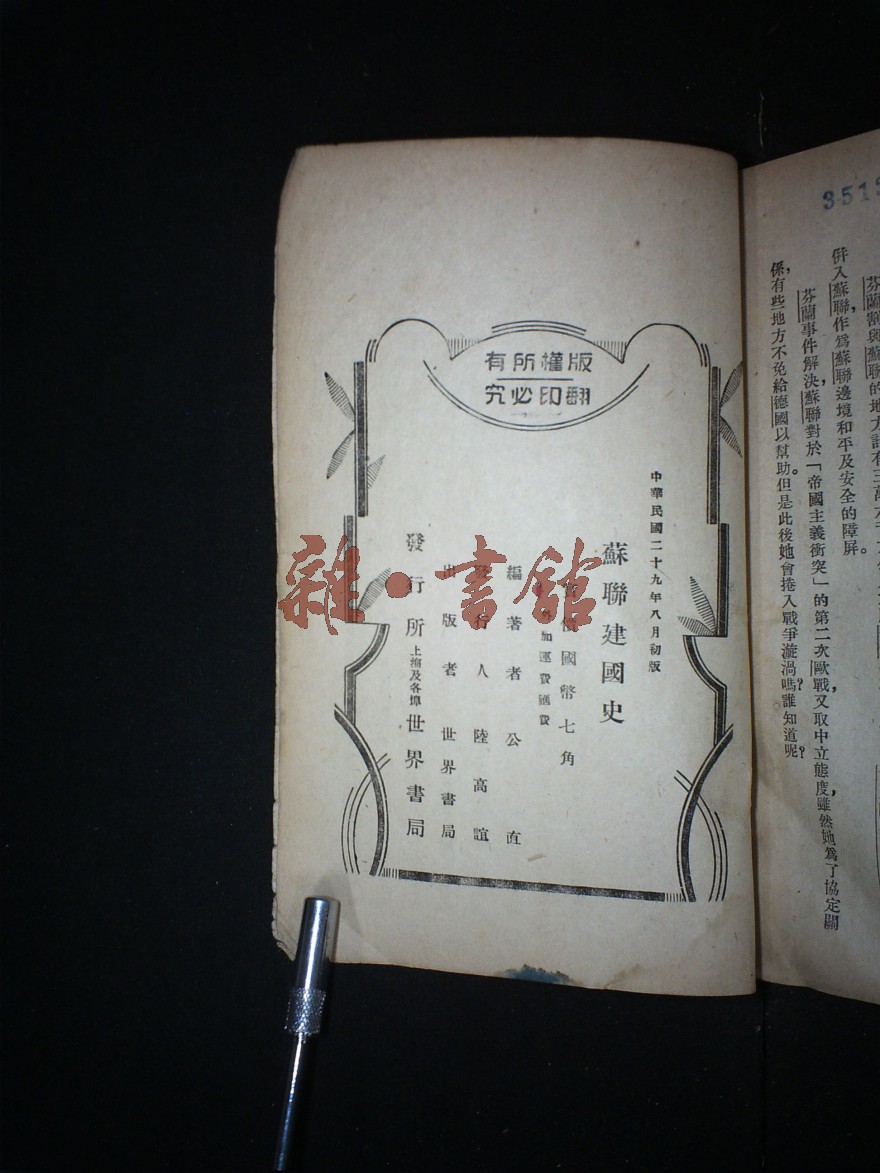 版權所有
翻印必究
中華民國二十九年八月初版
蘇聯建國史
價國幣七角
加運費匯費
編著者 公直
發行人 陸高誼
出版者 世界書局
發行所 上海及各埠 世界書局
雜·書館
3515
芬蘭割與蘇聯的地方計有三萬六千
併入蘇聯,作爲蘇聯邊境和平及安全的障屏。
芬蘭事件解決,蘇聯對於「帝國主義衝突」的第二次歐戰,又取中立態度,雖然她爲了協定關
係,有些地方不免給德國以幫助。但是此後她會捲入戰爭漩渦嗎?誰知道呢?